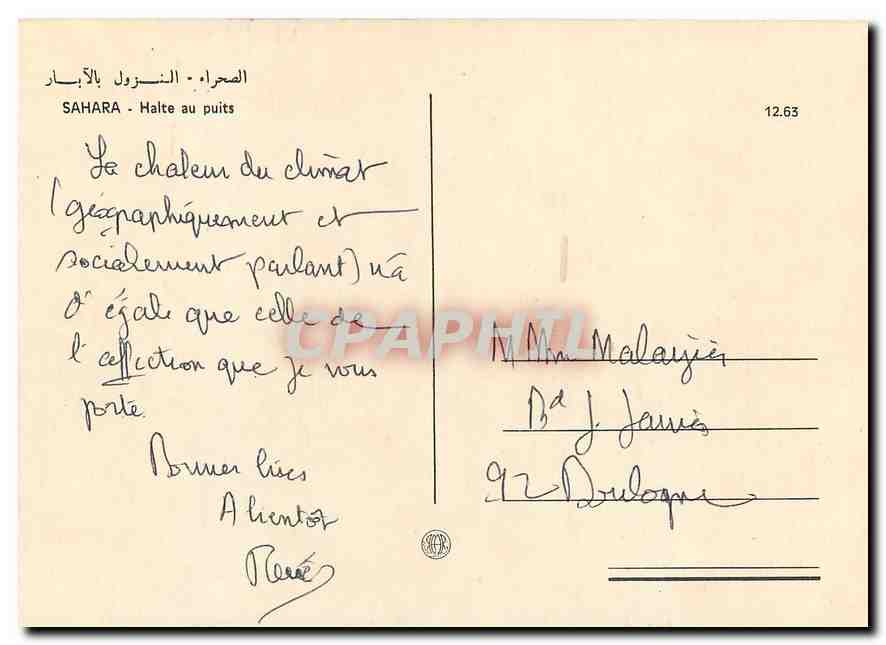 الصحراء - النزول بالآبار
SAHARA - Halte au puits
12.63
La chaleur du climat
(géographiquement et
socialement parlant) n'a
d'égale que celle de
l'affection que je vous
porte.
Bonnes bises
A bientôt
René
CPAPHIL
M Mme
Bd J. Jaurès
92 Boulogne